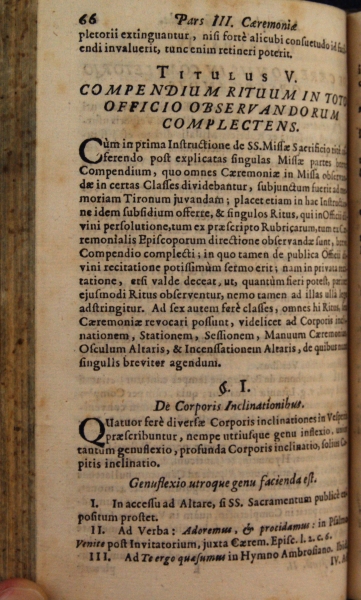 66 Pars III. Cæremoniæ
pletorii extinguantur, nisi fortè alicubi consuetudo id
endi invaluerit, tunc enim retineri poterit.
TITULUS V.
COMPENDIUM RITUUM IN TOTO
OFFICIO OBSERVANDORUM
COMPLECTENS.
Cùm in prima Instructione de SS. Missæ Sacrificio
ferendo post explicatas singulas Missæ partes
Compendium, quo omnes Cæremoniæ in Missa observan
dæ in certas Classes dividebantur, subjunctum fuerit ad me
moriam Tironum juvandam; placet etiam in hac Instructio
ne idem subsidium offerre, & singulos Ritus, qui in Officii di
vini persolutione, tum ex præscripto Rubricarum, tum ex Cæ
remonialis Episcoporum directione observandæ sunt,
Compendio complecti; in quo tamen de publica Officii di
vini recitatione potissimùm sermo erit; nam in privata reci
tatione, etsi valde deceat, ut, quantùm fieri potest,
ejusmodi Ritus observentur, nemo tamen ad illas ullâ lege
adstringitur. Ad sex autem ferè classes, omnes hi Ritus,
Cæremoniæ revocari possunt, videlicet ad Corporis incli
nationem, Stationem, Sessionem, Manuum Cæremonias
Osculum Altaris, & Incensationem Altaris, de quibus nunc
singulis breviter agendum.
§. I.
De Corporis Inclinationibus.
QUatuor ferè diversæ Corporis inclinationes in Vesperis
præscribuntur, nempe utriusque genu inflexio,
tantum genuflexio, profunda Corporis inclinatio, solius Ca
pitis inclinatio.
Genuflexio utroque genu facienda est.
I. In accessu ad Altare, si SS. Sacramentum publicè ex
positum prostet.
II. Ad Verba: Adoremus, & procidamus: in Psalmo
Venite post Invitatorium, juxta Cærem. Episc. l. 2. c. 6.
III. Ad Te ergo quæsumus in Hymno Ambrosiano. Ibid.
IV. A